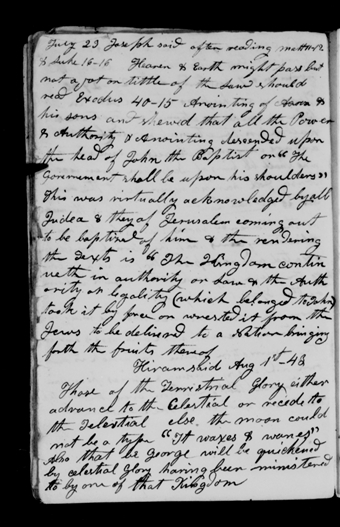 July 23 Joseph said after reading Matthew 2
& Luke 16-16 Heaven & Earth might pass but
not a jot or tittle of the Law should
read Exodus 40-15 Anointing of Aaron &
his sons and shewed that all the Power
& Authority & Anointing descended upon
the head of John the Baptist on "The
Government shall be upon his shoulders"
This was virtually acknowledged by all
Judea & they of Jerusalem coming out
to be baptized of him & the rendering
the Texts is "The Kingdom contin
ueth in authority or Law & the Auth
ority or legality (which belonged to John)
took it by force or wrested it from the
Jews to be delivered to a Nation bringing
forth the fruits thereof
Aug 1st - 43
Those of the Terrestrial Glory either
advance to the Celestial or recede to
the Telestial else the moon could
not be a type "It waxes & wanes"
Also that be George will be quickened
by celestial Glory having been ministered
to by one of that Kingdom